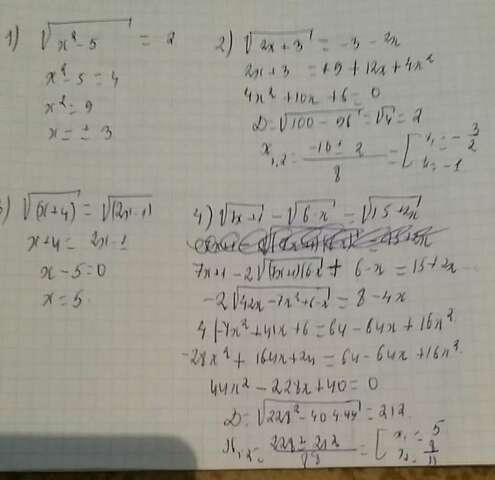 1) √(x² - 5) = 2
x² - 5 = 4
x² = 9
x = ± 3
2) √(2x + 3) = -3 - 2x
2x + 3 = +9 + 12x + 4x²
4x² + 10x + 6 = 0
D = √(100 - 96) = √4 = 2
x₁,₂ = (-10 ± 2)/8 = [ x₁ = -3/2
x₂ = -1
3) √(x + 4) = √(2x - 1)
x + 4 = 2x - 1
x - 5 = 0
x = 5
4) √(7x + 1) - √(6 - x) = √(15 + 2x)
7x + 1 - 2√((7x+1)(6-x)) + 6 - x = 15 + 2x
-2√(42x - 7x² + 6 - x) = 8 - 4x
4(-7x² + 41x + 6 = 64 - 64x + 16x²
-28x² + 164x + 24 = 64 - 64x + 16x²
44x² - 228x + 40 = 0
D = √(228² - 40·4·44) = 212
x₁,₂ = (228 ± 212)/88 = [ x₁ = 5